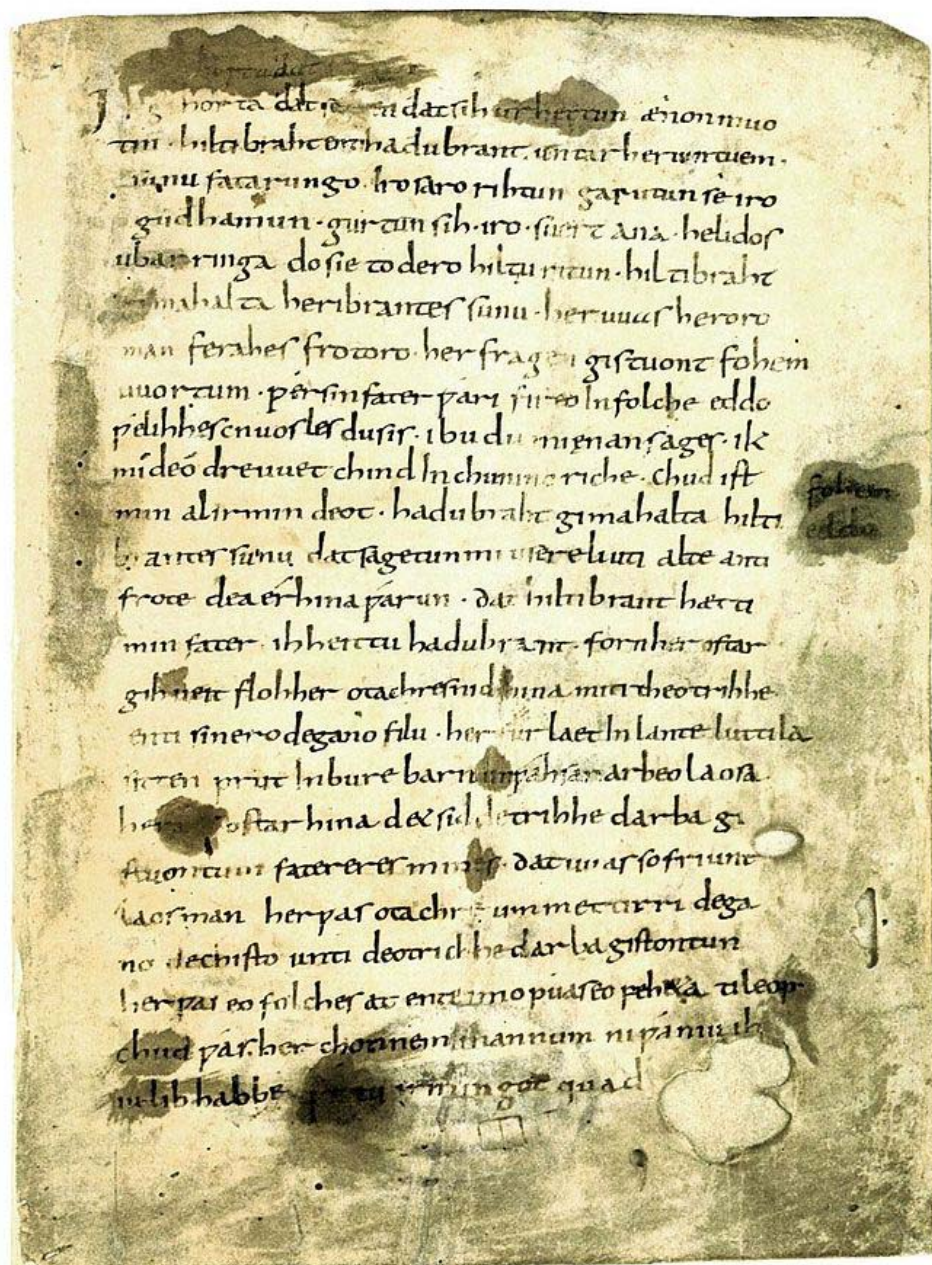 Ik gihorta dat seggen dat sih urhettun ænon muo
tin · hiltibraht enti hadubrant · untar heriun tuem ·
sunu fatarungo · iro saro rihtun garutun sê iro
gudhamun · gurtun sih · iro · suert ana · helidos
ubar ringa do sie to dero hiltu ritun · hiltibraht
gimahalta heribrantes sunu · her uuas heroro
man ferahes frotoro · her fragen gistuont fohem
uuortum · ƿer sin fater ƿari fireo In folche eddo
ƿelihhes cnuosles du sis · ibu du mi ęnan sages · ik
mi deo dre uuet chind In chunincriche · chud ist
min al irmin deot · hadubraht gimahalta hilti
brantes sunu dat sagetun mi usere liuti alte anti
frote dea érhina ƿarun · dat hiltibrant hætti
min fater · ih heittu hadubrant · forn her ostar
gihueit floh her otachres nid hina miti theotrihhe
enti sinero degano filu · her furlaet In lante luttila
sitten prut In bure barn unƿahsan arbeo laosa
her ostar hina det sid detrihhe darba gi
stuontum fatereres mines · dat uuas so friunt
laos man her ƿas otachre ummettirri dega
no dechisto unti deotrichhe darba gistontun
her ƿas eo folches at ente imo ƿuas eo feheta ti leop
chud ƿas her chonnem mannum ni ƿaniu ih
iu lib habbe irmingot quad
fohem
eddo